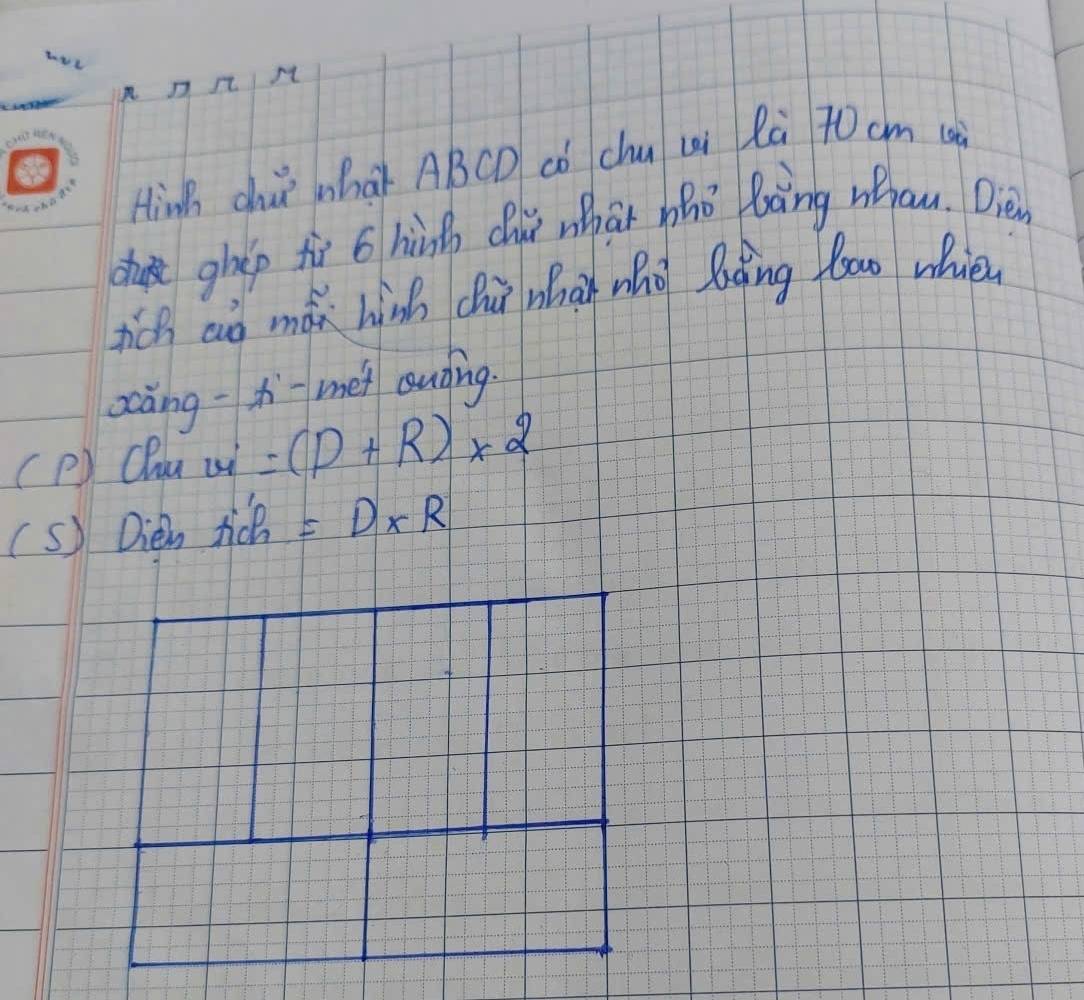 Hình chữ nhật ABCD có chu vi là 70 cm và
được ghép từ 6 hình chữ nhật nhỏ bằng nhau. Diện
tích củả mỗi hình chữ nhật nhỏ bằng bao nhiêu
xăng - ti - mét vuông.
(P) Chu vi = (D + R) x 2
(S) Diện tích = D x R